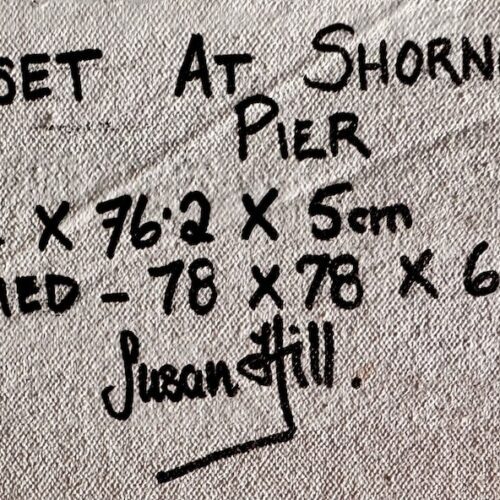 SET AT SHORN
PIER
X 76.2 X 5cm
MED - 78 X 78 X 6
Susan Hill.